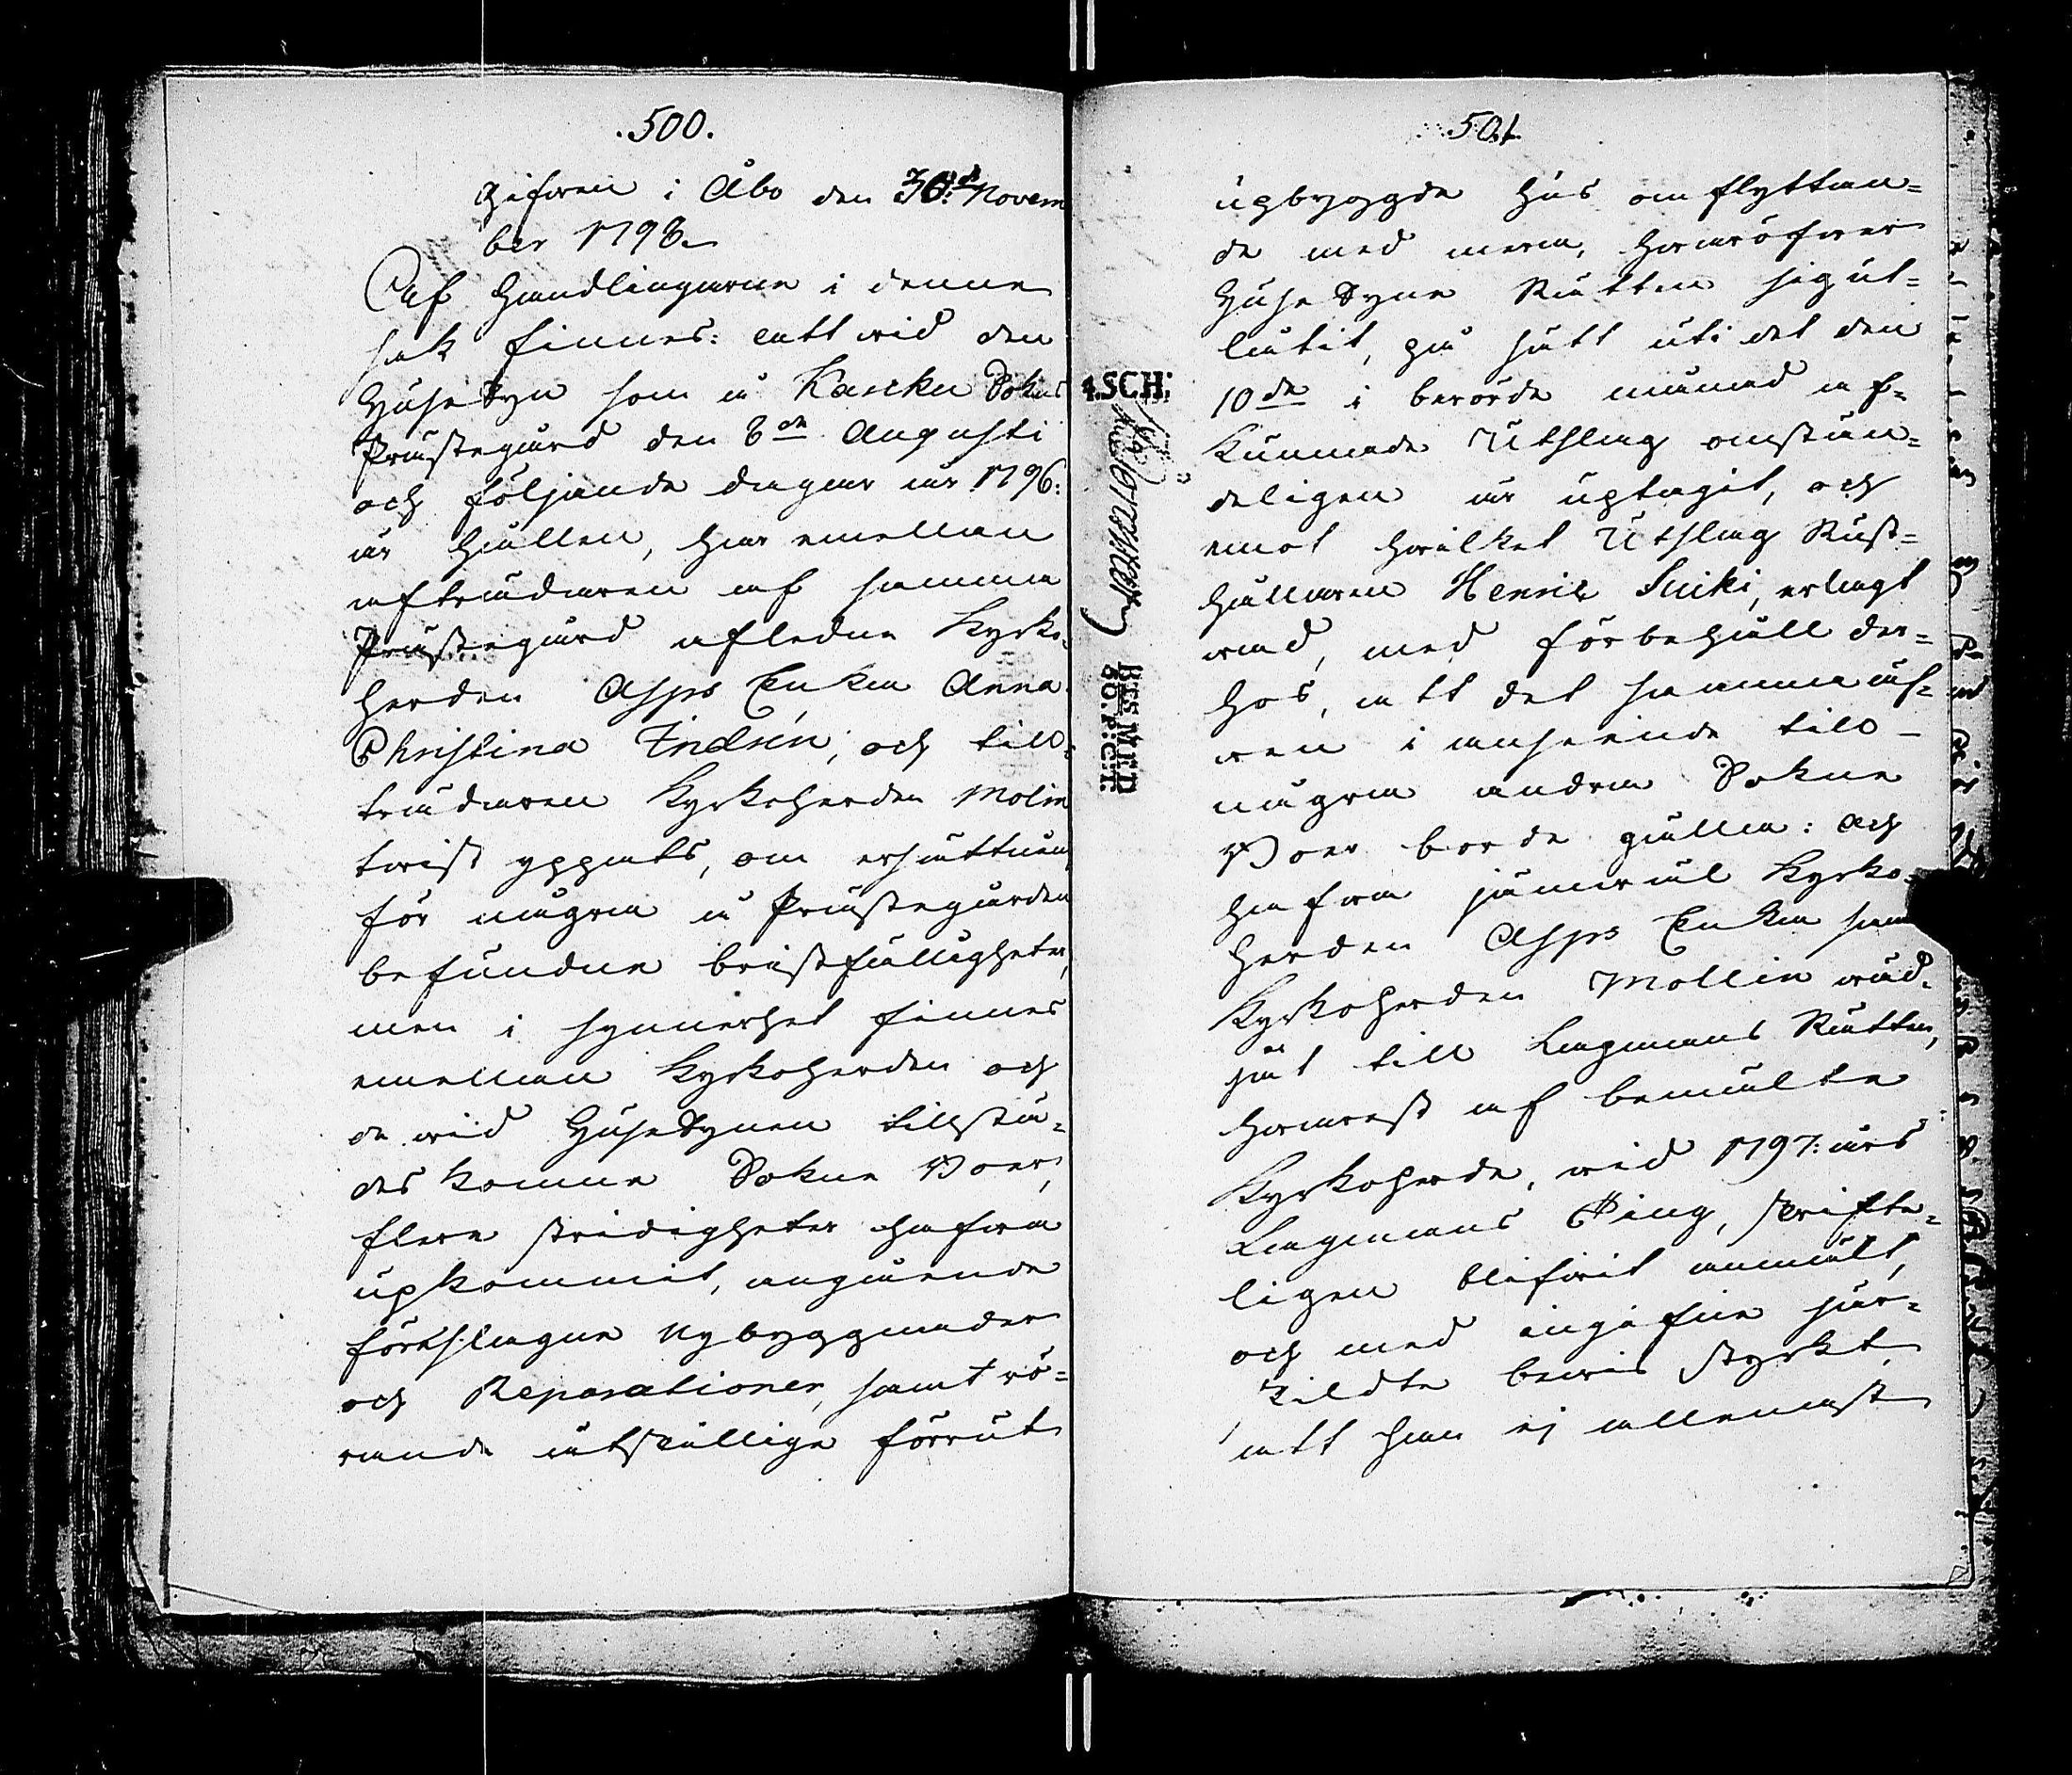 .500.
Gifwen i Åbo den 30:d Novem
ber 1798.
Af Handlingarne i denne
sak finnes: att wid den
HuseSyn som å Karcku Sokns
Prästegård den 8de Augusti
och följande dagar år 1796:
är hållen, har emellan
afträdaren af samma
Prästegård afledne Kyrko-
herden Asps Enka Anna
Christina Indrén, och till-
trädaren Kyrkoherden Molin
twist yppats, om ersättning
för några å Prästegården
befundne bristfälligheter,
men i synnerhet finnes
emellan Kyrkoherden och
de wid HuseSynen tillstä-
des komne SokneBoer,
flere stridigheter hafwa
upkommit, angående
föreslagne Nybyggnader
och Reparationer, samt rö-
rande åtskillige förrut
501.
upbyggde hus omflyttan-
de med mera, hwaröfwer
HuseSyne Rätten sig ut-
låtit, på sätt uti det den
10de i berörde månad af-
kunnade Utslag omstän-
deligen är uptagit, och
emot hwilket Utslag Rust-
hållaren Henric Suiki, erlagt
wad, med förbehåll der-
hos, att det samma äf-
wen i anseende till
några andra Sokne
Boer borde gälla: och
hafwa jämwäl Kyrko-
herden Asps Enka samt
Kyrkoherden Mollin wäd-
jat till Lagmans Rätten,
hwarest af bemälte
Kyrkoherde, wid 1797: års
Lagmans Ting, skrifte-
ligen blifwit anmält,
och med ingifne sär-
skildte bewis styrkt,
att han ej allenast
4.SCH: